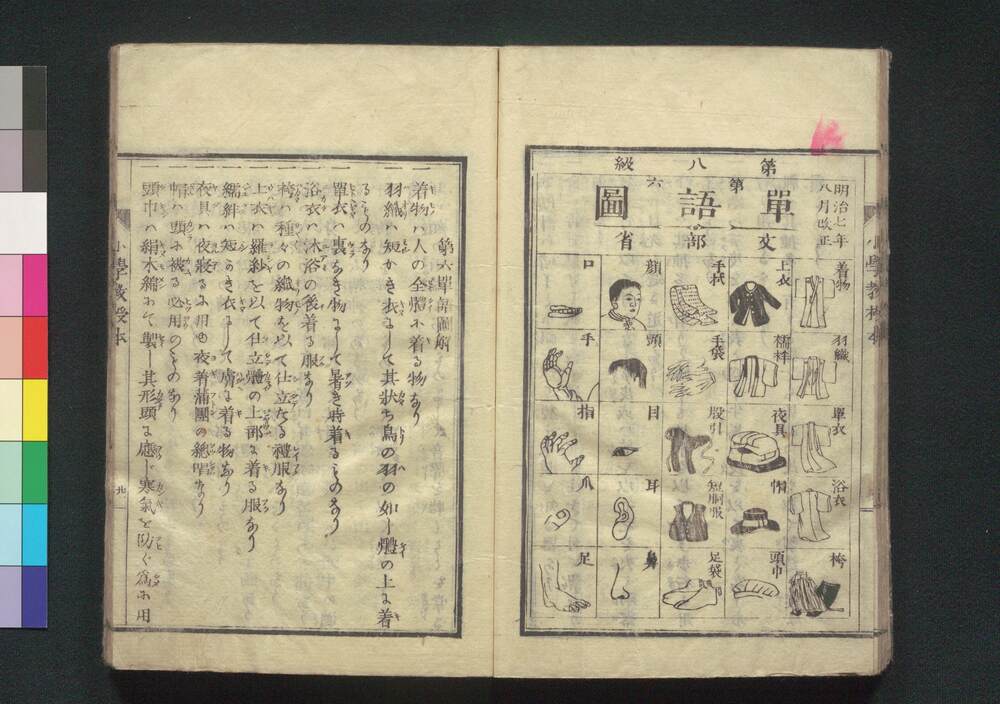 第八級
明治七年
八月改正
第六
單語圖
文部省
着物
羽織
單衣
浴衣
袴
上衣
襦袢
夜具
帽
頭巾
手拭
手袋
股引
短胴服
足袋
顔
頭
目
耳
鼻
口
手
指
爪
足
第六單語圖解
一 着物ハ人の全體に着る物なり
一 羽織ハ短かき衣にして其狀ち鳥の羽の如し禮の上に着
るものなり
一 單衣ハ裏なき物にして暑き時着るものなり
一 浴衣ハ沐浴の後着る服なり
一 袴ハ種々の織物を以て仕立たる禮服なり
一 上衣ハ羅紗を以て仕立體の上部に着る服なり
一 襦袢ハ短かき衣にして膚に着る物なり
一 夜具ハ夜寢るに用ゆ夜着蒲團の總名なり
一 帽ハ頭に被る必用のものなり
一 頭巾ハ絹木綿にて製し其形頭に應じ寒氣を防ぐ爲に用
小學教授本